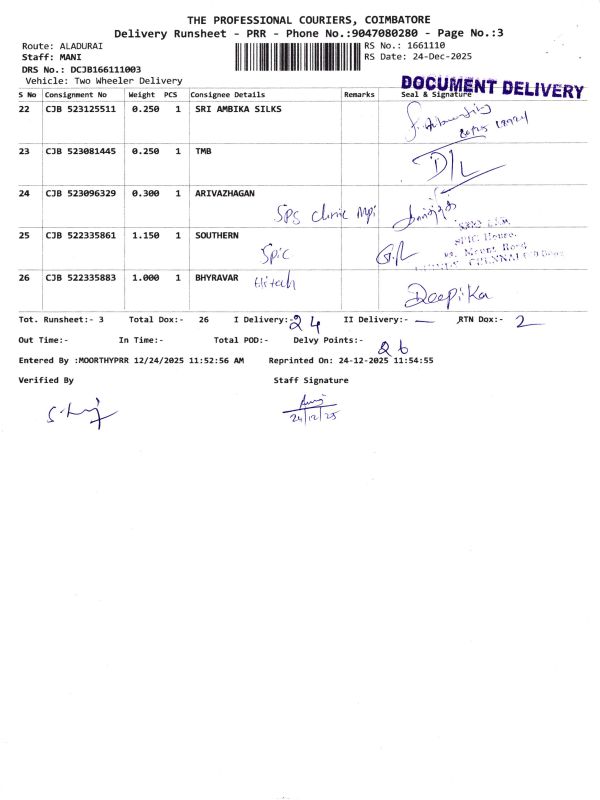 THE PROFESSIONAL COURIERS, COIMBATORE
Delivery Runsheet - PRR - Phone No.:9047080280 - Page No.:3
Route: ALADURAI RS No.: 1661110
Staff: MANI RS Date: 24-Dec-2025
DRS No.: DCJB166111003
Vehicle: Two Wheeler Delivery
DOCUMENT DELIVERY
S No Consignment No Weight PCS Consignee Details Remarks Seal & Signature
22 CJB 523125511 0.250 1 SRI AMBIKA SILKS
23 CJB 523081445 0.250 1 TMB D/L
24 CJB 523096329 0.300 1 ARIVAZHAGAN
SPS clinic
25 CJB 522335861 1.150 1 SOUTHERN
Spic
SPIC House,
Mount Road
26 CJB 522335883 1.000 1 BHYRAVAR Hitech
Deepika
Tot. Runsheet:- 3 Total Dox:- 26 I Delivery:- 24 II Delivery:- — RTN Dox:- 2
Out Time:- In Time:- Total POD:- Delvy Points:- 26
Entered By :MOORTHYPRR 12/24/2025 11:52:56 AM Reprinted On: 24-12-2025 11:54:55
Verified By Staff Signature
24/12/25